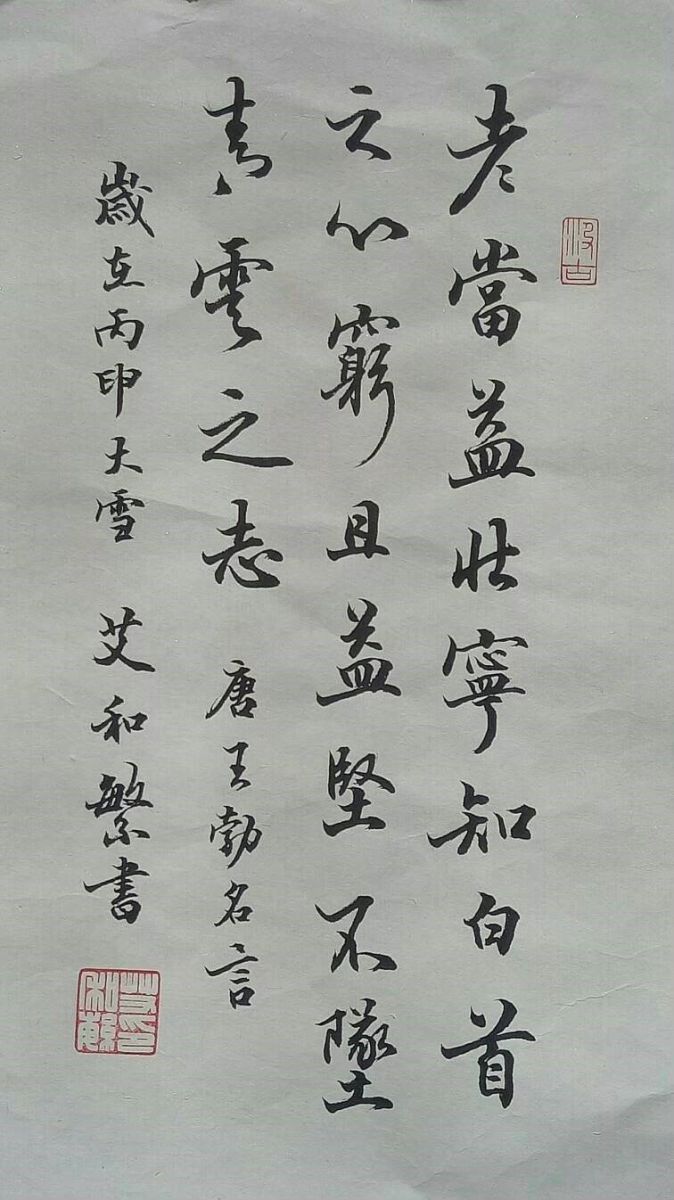 老當益壯寧知白首
之心窮且益堅不墜
青雲之志 唐王勃名言
歲在丙申大雪 艾和繁書